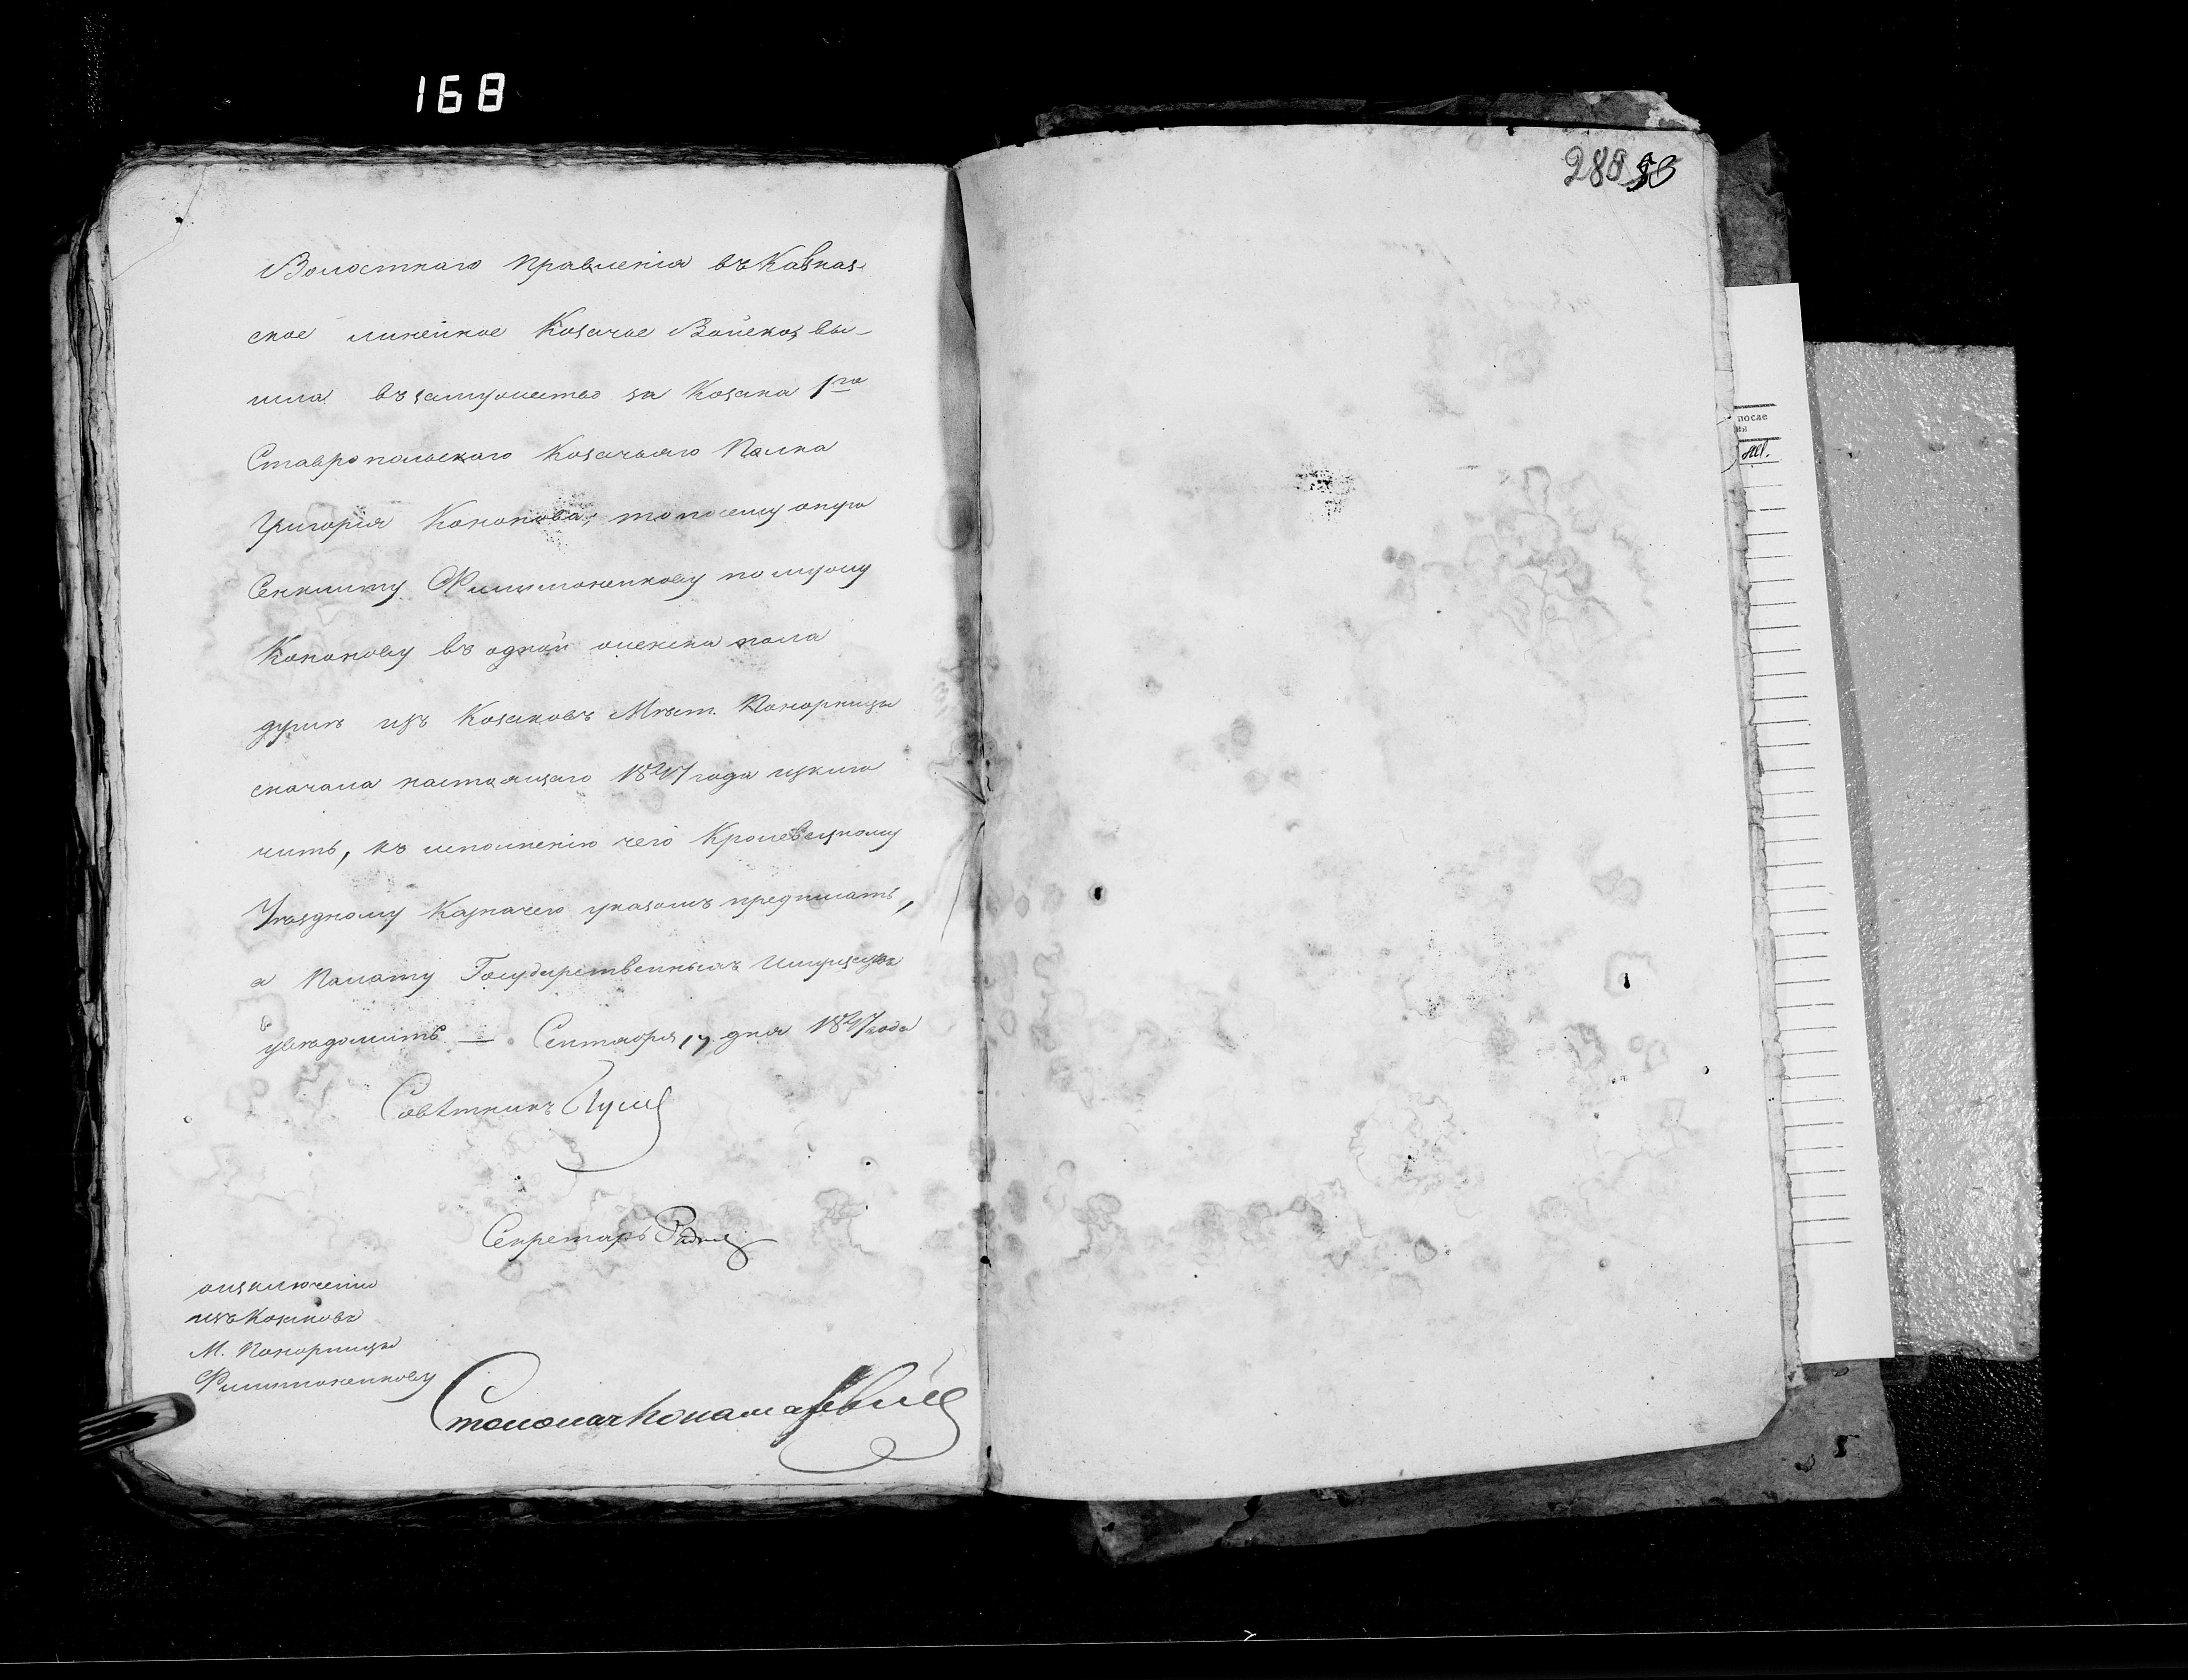 168
288 53
Волостнаго Правленія въ Кавказ-
ское линейное Козачье Войско, вы-
шла въ замужество за Козака 1го
Ставропольскаго Козачьяго Полка
Григорія Кононова; то по сему оную
Филимоненкову по мужу
Кононову въ одной женска пола
душѣ изъ Козаковъ Мѣст. Понорницы
сначала настоящаго 1847 года исклю
чить, къ исполненію чего Кролевецкому
Уѣздному Казначею указомъ предписать,
а Палату Государственныхъ Имуществъ
увѣдомить — Сентября 17 дня 1847 года
Совѣтникъ
Секретарь
о изключеніи
изъ Козаковъ
М. Понорницы
Филимоненкову
Столоначальник
после
ия